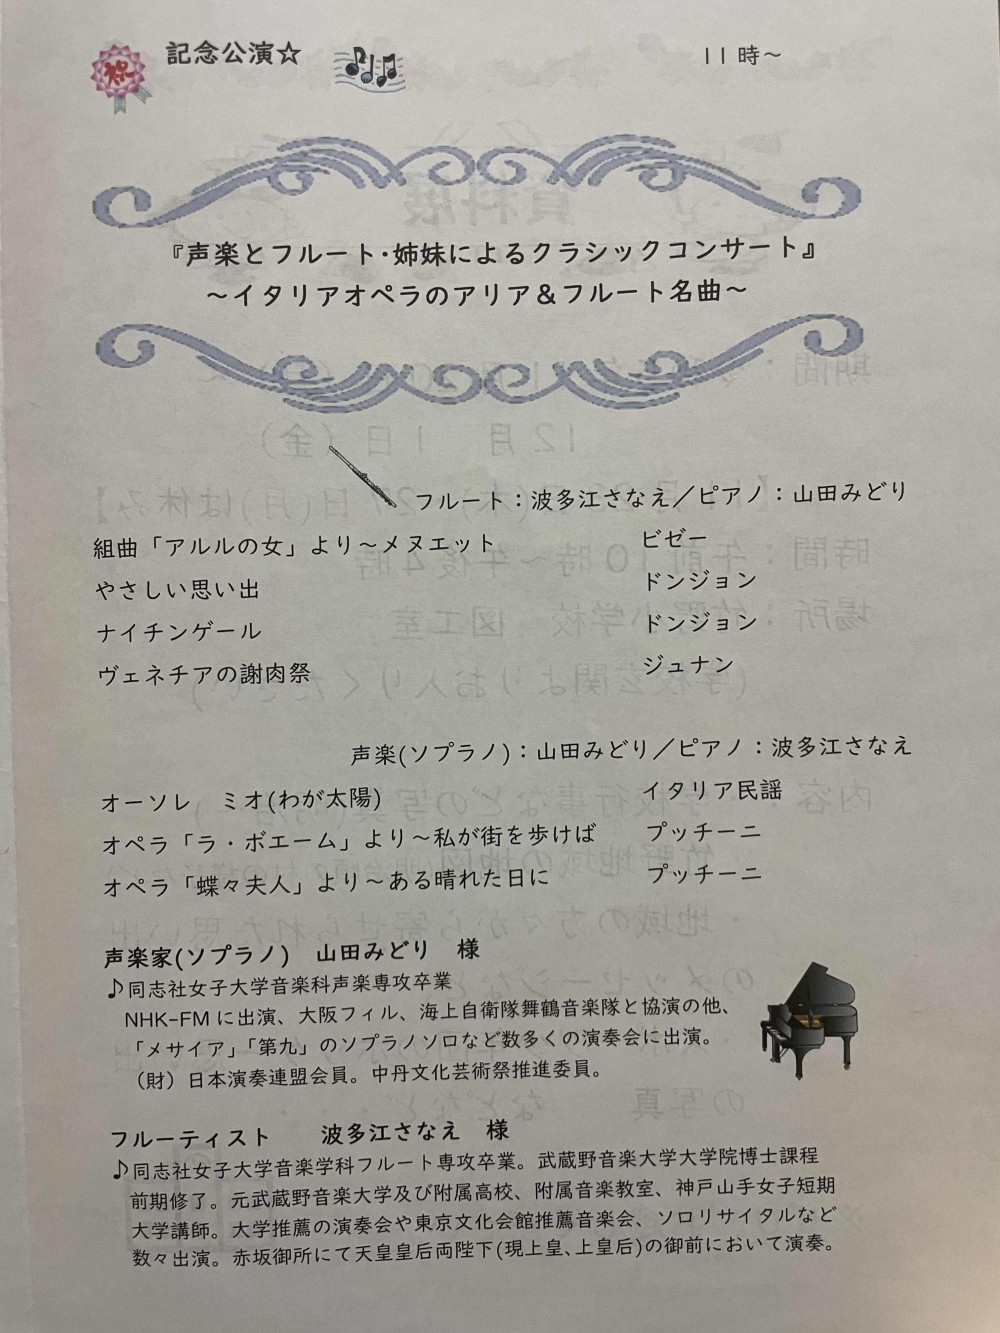 祝
記念公演☆
11時～
『声楽とフルート・姉妹によるクラシックコンサート』
～イタリアオペラのアリア＆フルート名曲～
フルート：波多江さなえ／ピアノ：山田みどり
組曲「アルルの女」より～メヌエット　ビゼー
やさしい思い出　ドンジョン
ナイチンゲール　ドンジョン
ヴェネチアの謝肉祭　ジュナン
声楽(ソプラノ)：山田みどり／ピアノ：波多江さなえ
オーソレ　ミオ(わが太陽)　イタリア民謡
オペラ「ラ・ボエーム」より～私が街を歩けば　プッチーニ
オペラ「蝶々夫人」より～ある晴れた日に　プッチーニ
声楽家(ソプラノ)　山田みどり　様
♪同志社女子大学音楽科声楽専攻卒業
NHK−FMに出演、大阪フィル、海上自衛隊舞鶴音楽隊と協演の他、
「メサイア」「第九」のソプラノソロなど数多くの演奏会に出演。
（財）日本演奏連盟会員。中丹文化芸術祭推進委員。
フルーティスト　　波多江さなえ　様
♪同志社女子大学音楽学科フルート専攻卒業。武蔵野音楽大学大学院博士課程
前期修了。元武蔵野音楽大学及び附属高校、附属音楽教室、神戸山手女子短期
大学講師。大学推薦の演奏会や東京文化会館推薦音楽会、ソロリサイタルなど
数々出演。赤坂御所にて天皇皇后両陛下(現上皇、上皇后)の御前において演奏。